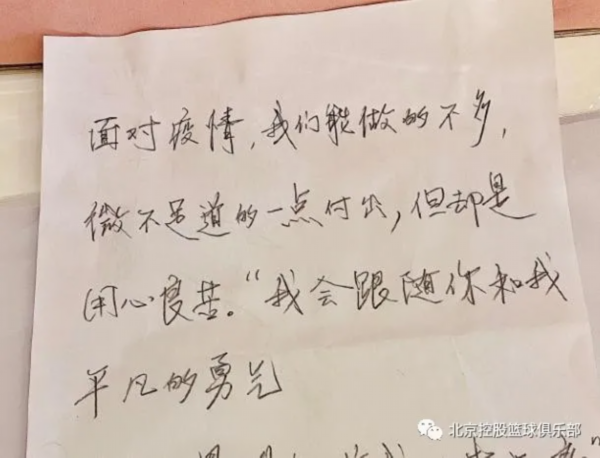 面对疫情,我们能做的不多,
微不足道的一点付出,但却是
用心良苦。“我会跟随你和我
平凡的勇气
北京控股篮球俱乐部